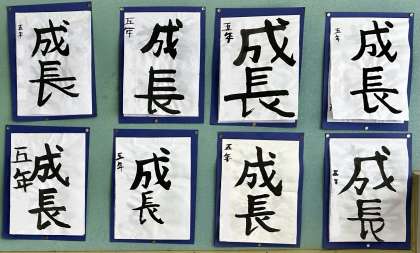 成長
五年
成長
五年
成長
五年
成長
五年
成長
五年
成長
五年
成長
五年
成長
五年